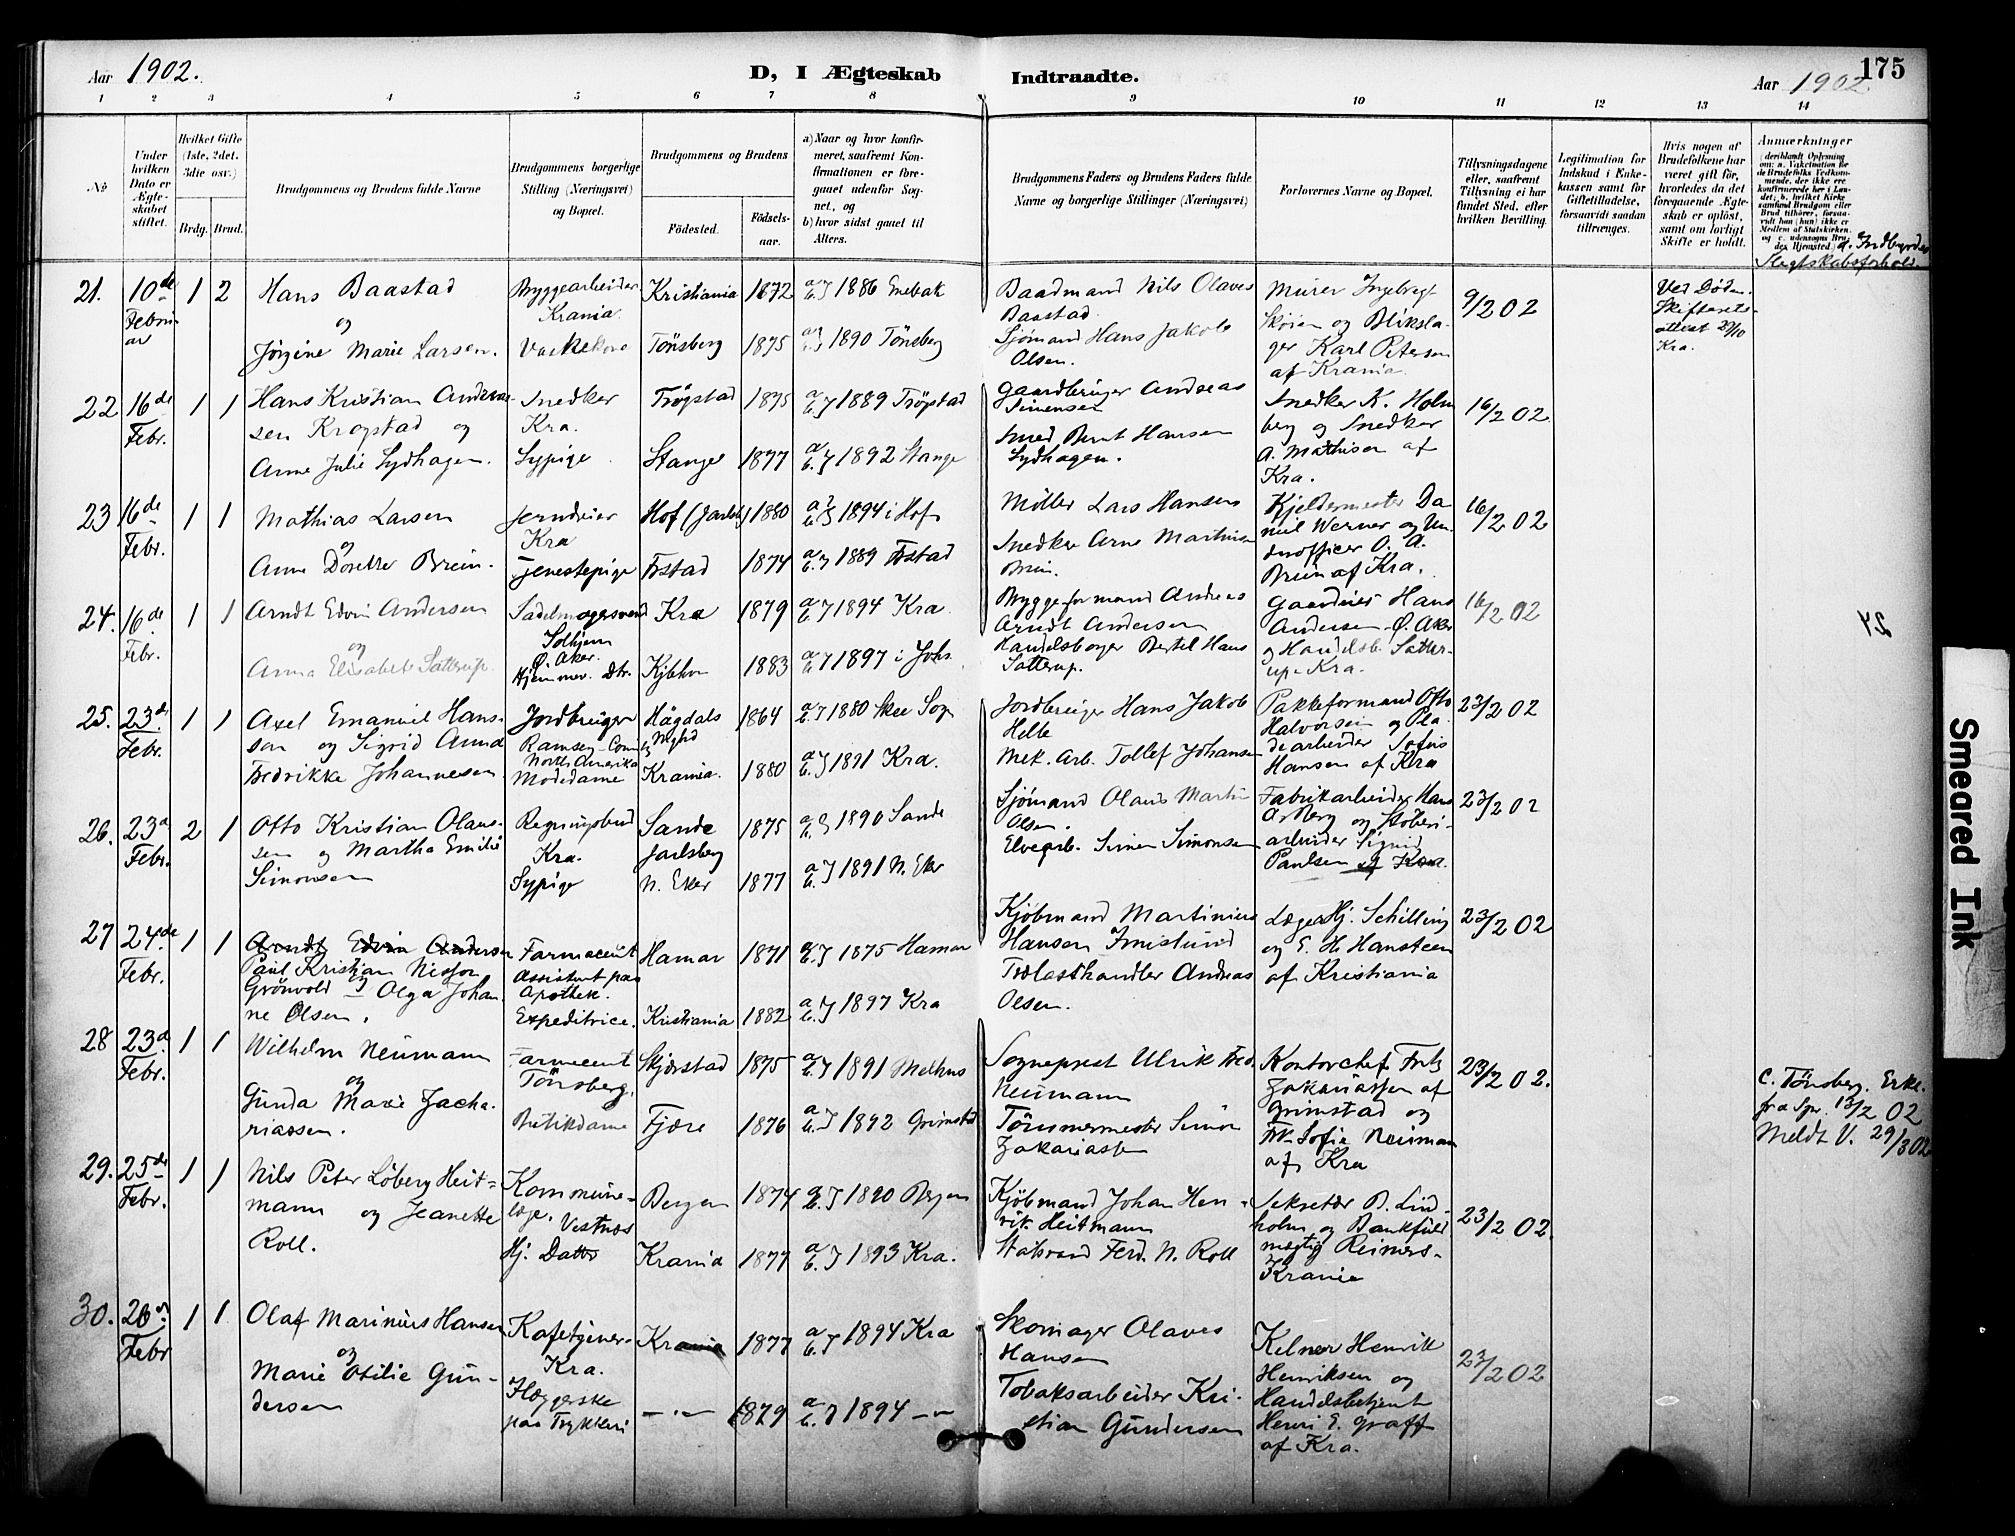 Aar 1902.
D, I Ægteskab Indtraadte.
Aar 1902
175
1 2 3 4 5 6 7 8 9 10 11 12 13 14
No
Under hvilken Dato er Ægteskabet stiftet.
Hvilket Gifte (1ste, 2det, 3die osv.)
Brdg. Brud.
Brudgommens og Brudens fulde Navne
Brudgommens borgerlige Stilling (Næringsvei) og Bopæl.
Brudgommens og Brudens
Fødested.
Fødselsaar.
a) Naar og hvor konfirmeret, saafremt Konfirmationen er foregaaet udenfor Sognet, og
b) hvor sidst gaaet til Alters.
Brudgommens Faders og Brudens Faders fulde Navne og borgerlige Stillinger (Næringsvei)
Forlovernes Navne og Bopæl.
Tillysningsdagene eller, saafremt Tillysning ei har fundet Sted, efter hvilken Bevilling.
Legitimation for Indskud i Enkekassen samt for Giftetilladelse, forsaavidt saadan tiltrænges.
Hvis nogen af Brudefolkene har været gift før, hvorledes da det foregaaende Ægteskab er opløst, samt om lovligt Skifte er holdt.
Anmærkninger
21. 10de Februar 1 2
Hans Baastad
og
Jørgine Marie Larsen.
Byggearbeider
Krania.
Kristiania 1872
Tönsberg 1875
1886 Enebak
1890 Tönsberg
Baadmand Nils Olaves
Baastad.
Sjømand Hans Jakob
Olsen.
Murer Ingebregt
Skøien og Bliksla-
ger Karl Petersen
af Krania.
9/2 02
Ved Døden.
Skifterets-
attest
Kra.
22 16de Febr. 1 1
Hans Kristian Andrea-
sen Krogstad og
Anne Julie Sydhagen.
Snedker
Kra.
Sypige
Trøgstad 1875
Stange 1877
1889 Trøgstad
1892 Stange
Gaardbruger Andreas
Simensen
Smed Bernt Hansen
Sydhagen.
Snedker K. Holm
berg og Snedker
A. Mathisen af
Kra.
16/2 02
23 16de Febr. 1 1
Mathias Larsen
og
Anne Dorethe Brein.
Jerndreier
Kra
Tjenestepige
Hof (Jarlsb) 1880
Frstad 1874
1894 i Hof
1889 Frstad
Møller Lars Hansen
Snedker Arne Martinsen
Brein.
Kjeldermester Da
niel Werner og Un-
derofficer O. A.
Brein af Kra.
16/2 02
24. 16de Febr. 1 1
Arndt Edvin Andersen
og
Anna Elisabeth Satterup.
Sadelmagersvend
Solhjem
Ø. Aker.
Hjemmev. Dtr.
Kra 1879
Kjbhvn 1883
1894 Kra
1897 i Johs
Bryggeformand Andreas
Arndt Andersen
Handelsborger Bertel Hans
Satterup.
Gaardeier Hans
Andersen Ø. Aker
og Handelsb. Satter-
up Kra.
16/2 02
24
25. 23de Febr. 1 1
Axel Emanuel Hans-
son og Sigrid Anna
Fredrikke Johannesen
Jordbruger
Ramsey
North Amerika
Modedame
1864
Krania. 1880
1880 Skee Sogn
1891 Kra.
Jordbruger Hans Jakob
Helte
Mek. Arb. Tollef Johansen
Pakkeformand Otto
Halvorsen og Pla-
dearbeider Sofus
Hansen af Kra
23/2 02
26. 23de Febr. 2 1
Otto Kristian Olaus-
sen og Martha Emilie
Simonsen
Regningsbud
Kra.
Sypige
Sande
Jarlsberg 1875
N. Eker 1877
1890 Sande
1891 N. Eker
Sjömand Olaus Martin
Olsen.
Elvearb. Simen Simonsen
Fabrikarbeider Hans
A. Berg og Støberi-
arbeider Sigurd
Paulsen af Kra.
23/2 02
27 24de Febr. 1 1
Arndt Edvin Andersen
Paul Kristian Nestor
Grönvold og Olga Johan
ne Olsen.
Farmaceut
Assistent paa
Apothek.
Expeditrice.
Hamar 1871
Kristiania 1882
1875 Hamar
1897 Kra
Kjöbmand Martinius
Hansen Imislund
Trælasthandler Andreas
Olsen.
Læge Hj. Schilling
og E. H. Hansteen
af Kristiania
23/2 02
28 23de Febr. 1 1
Wilhelm Neumann
og
Gunda Marie Zacha-
riassen.
Farmeceut
Tönsberg.
Butikdame
Skjerstad 1875
Fjære 1876
1891 Melhus
1892 Grimstad
Sogneprest Ulrik Fred.
Neumann
Tömmermester Simon
Zakariassen
Kontorchef Frits
Zakariassen af
Grimstad og
Frk. Sofie Neuman
af Kra
23/2 02.
C. Tönsberg. Erkl.
fra Spr. 13/2 02
Meldt V. 29/3 02
29. 25de Febr. 1 1
Nils Peter Löberg Heit-
mann og Jeanette
Roll.
Kommune-
læge. Vestnes
Hj. Datter
Bergen 1874
Krania 1877
1890 Bergen
1893 Kra.
Kjöbmand Johan Hen-
rik Heitmann
Statsraad Ferd. N. Roll
Sekretær B. Lind-
holm og Bankfuld
mægtig Reimers-
Krania
23/2 02.
30. 26de Febr 1 1
Olaf Marinius Hansen
og
Marie Otilie Gun-
dersen
Kafetjener-
Kra.
Ilæggerske
paa Trykkeri
Krania 1877
— " — 1879
1894 Kra
1894 — " —
Skomager Olaves
Hansen
Tobaksarbeider Kri-
stian Gundersen
Kelner Henrik
Henriksen og
Handelsbetjent
Henri E. Graff
af Kra.
23/2 02
Smeared Ink